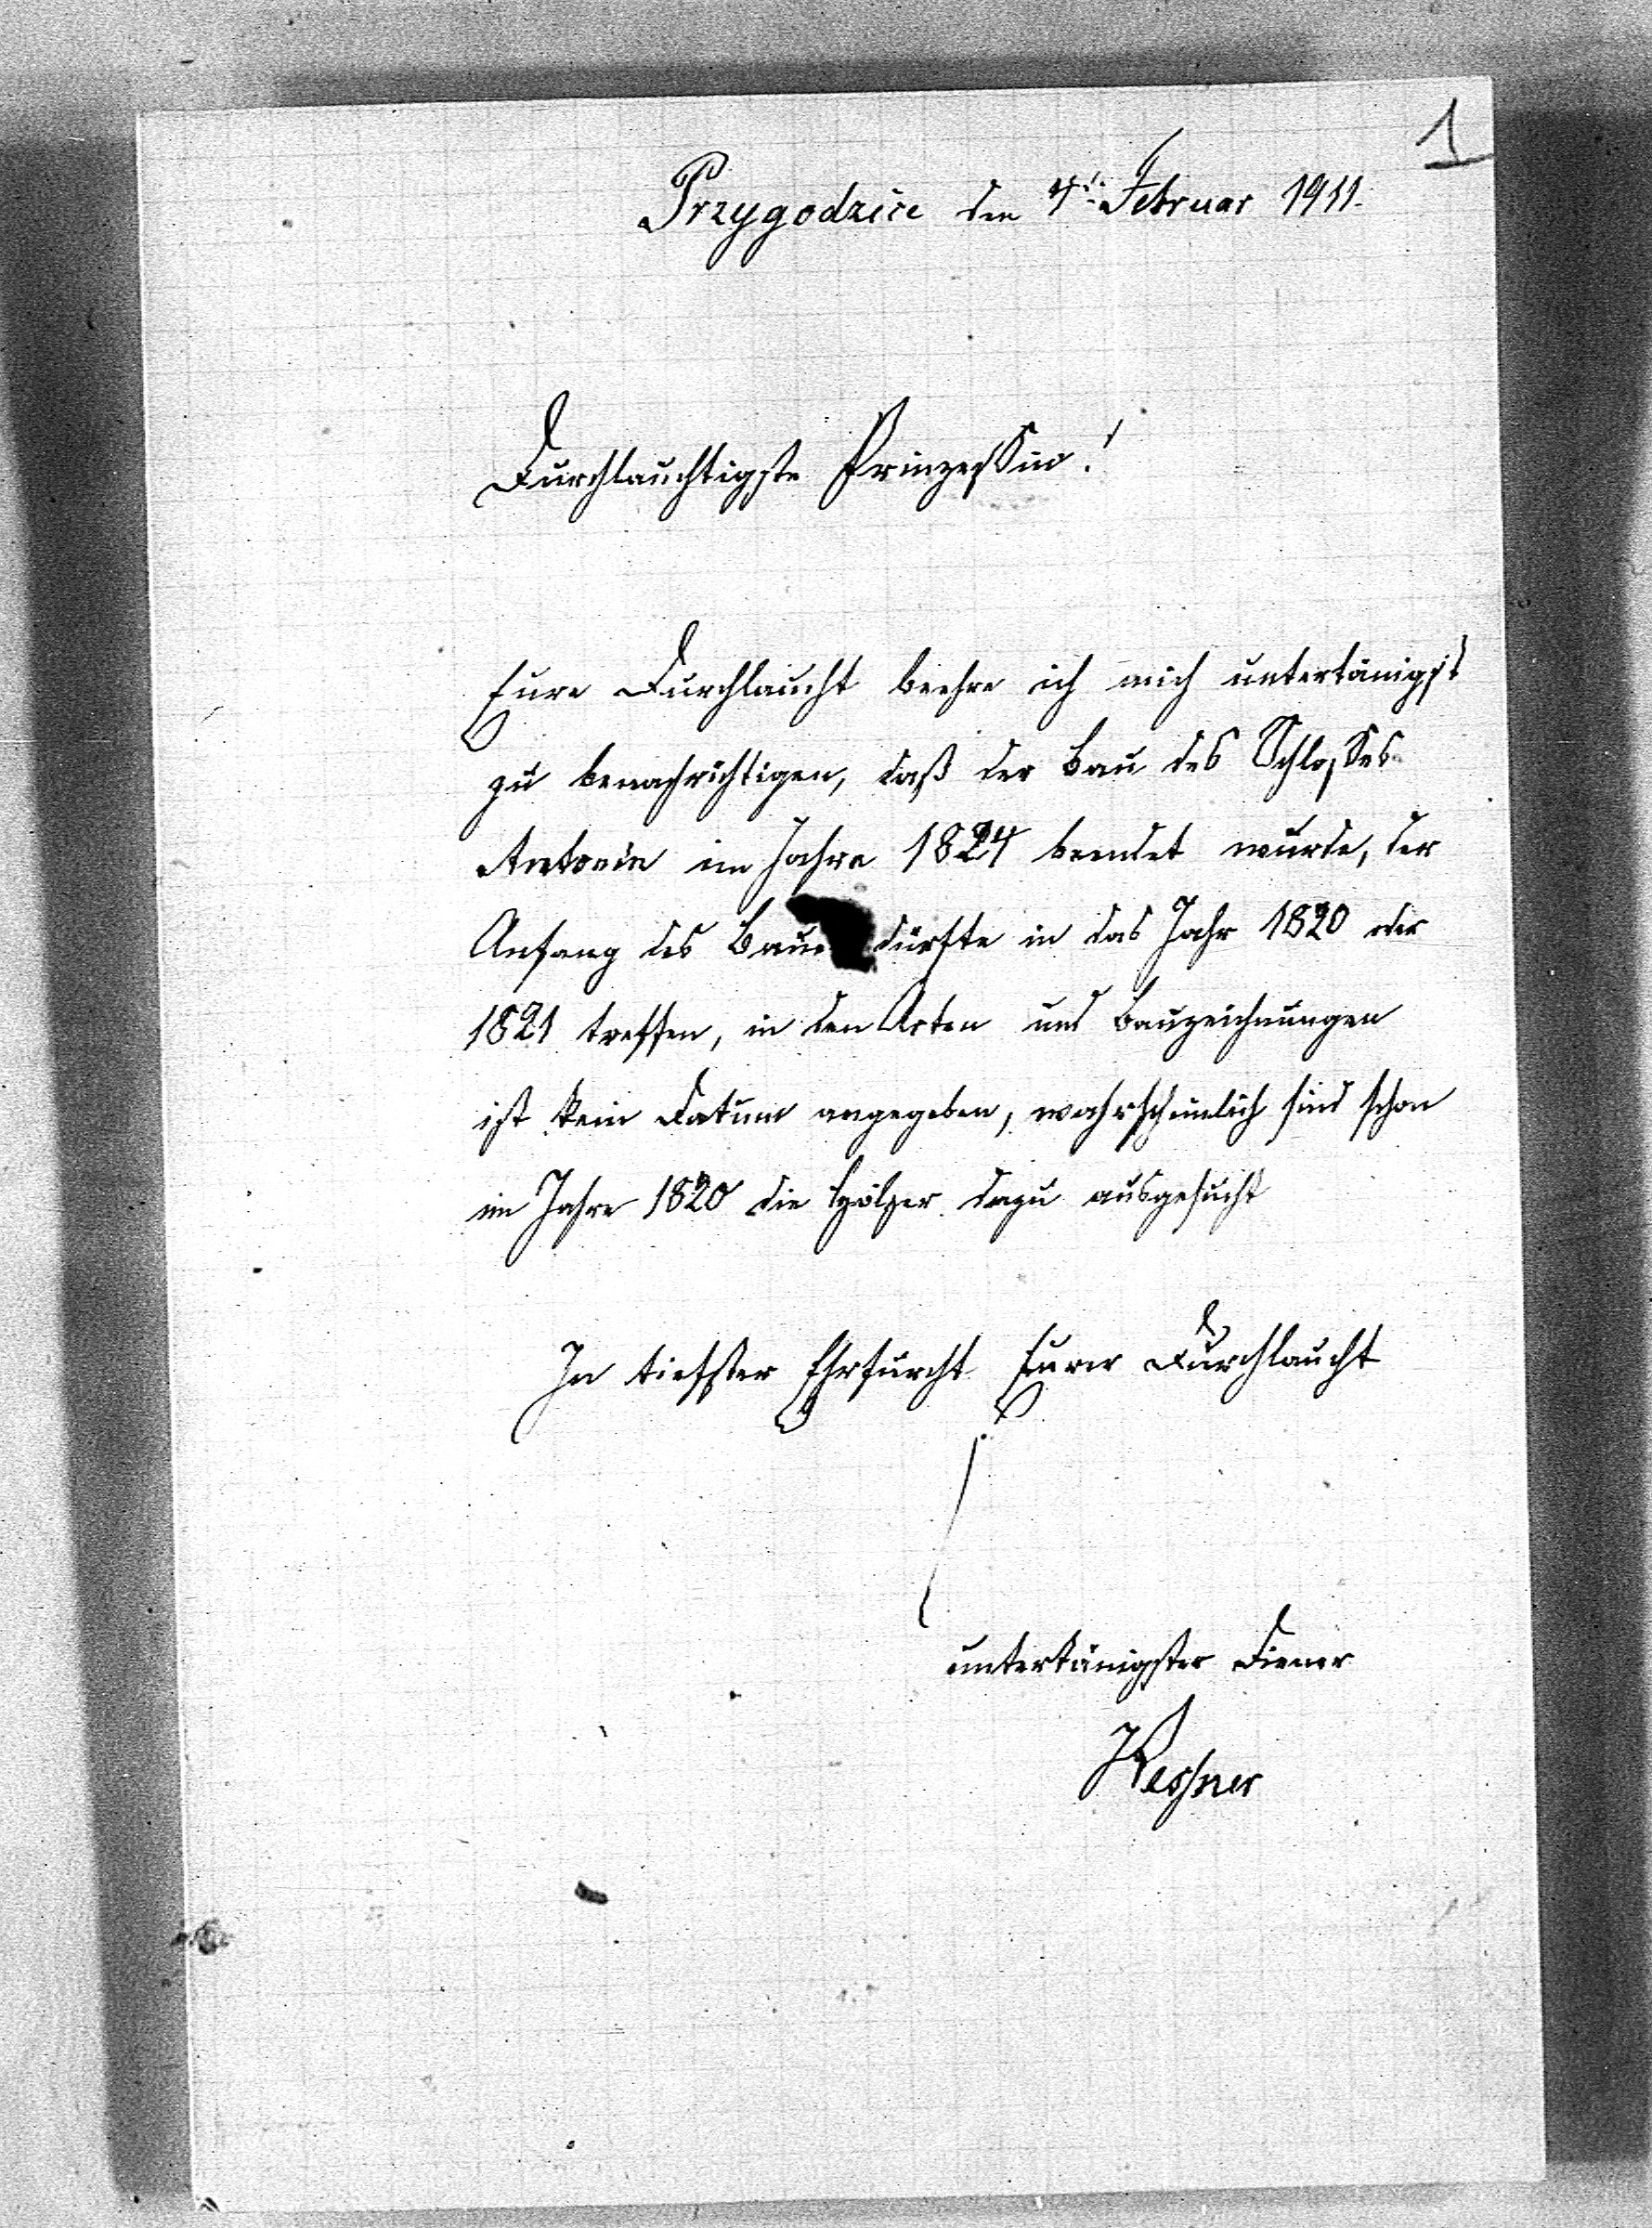 1
Przygodzice den 4ten Februar 1911.
Durchlauchtigste Prinzessin!
Eure Durchlaucht beehre ich mich untertänigst
zu benachrichtigen, daß der Bau des Schlosses
Antonin im Jahre 1824 beendet wurde, der
Anfang des Baues dürfte in das Jahr 1820 oder
1821 treffen, in den Acten und Bauzeichnungen
ist kein Datum angegeben, wahrscheinlich sind schon
im Jahre 1820 die Hölzer dazu ausgesucht
In tiefster Ehrfurcht Eurer Durchlaucht
untertänigster Diener
Kessner